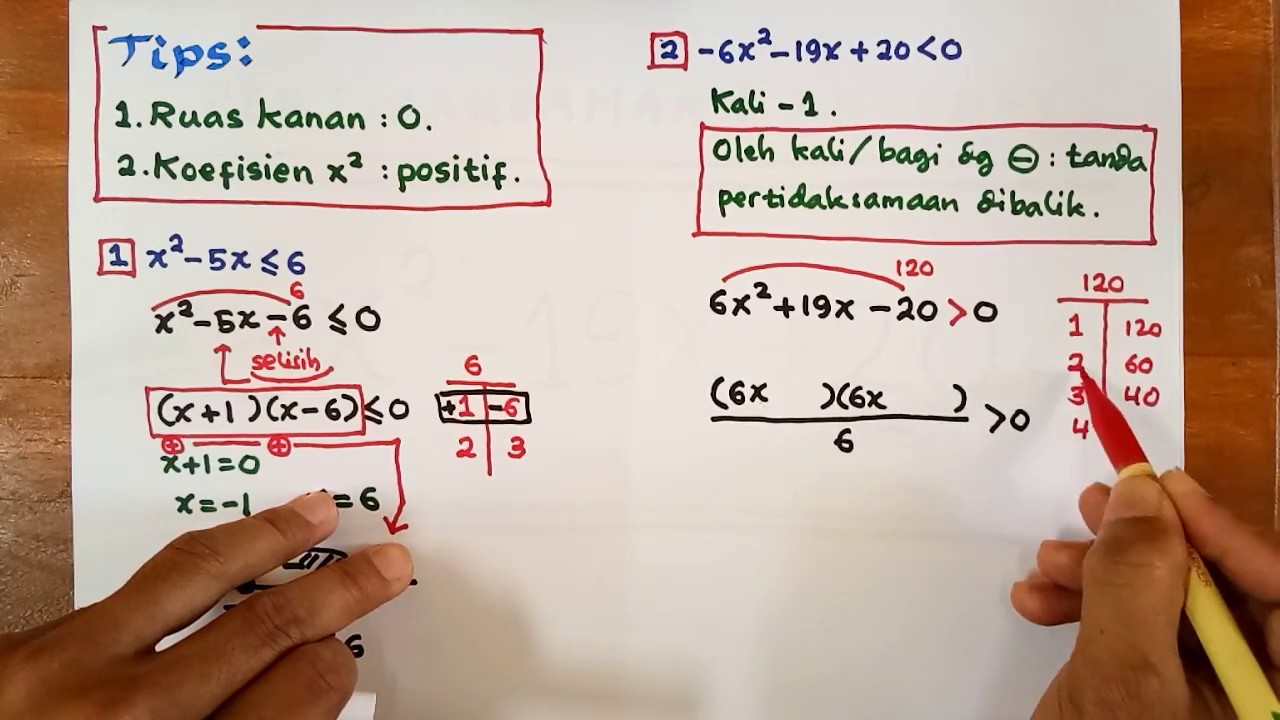 Tips:
1. Ruas kanan : 0.
2. Koefisien x² : positif.
1 x² - 5x ≤ 6
6
x² - 5x - 6 ≤ 0
selisih
(x + 1 )(x - 6) ≤ 0
⊕ ⊕
x + 1 = 0
x = -1
= 6
6
+1 | -6
2 | 3
6
2 -6x² - 19x + 20 < 0
Kali - 1 .
Oleh kali/bagi dg ⊖ : tanda
pertidaksamaan dibalik.
120
6x² + 19x - 20 > 0
(6x )(6x )
6
> 0
120
1 | 120
2 | 60
3 | 40
4